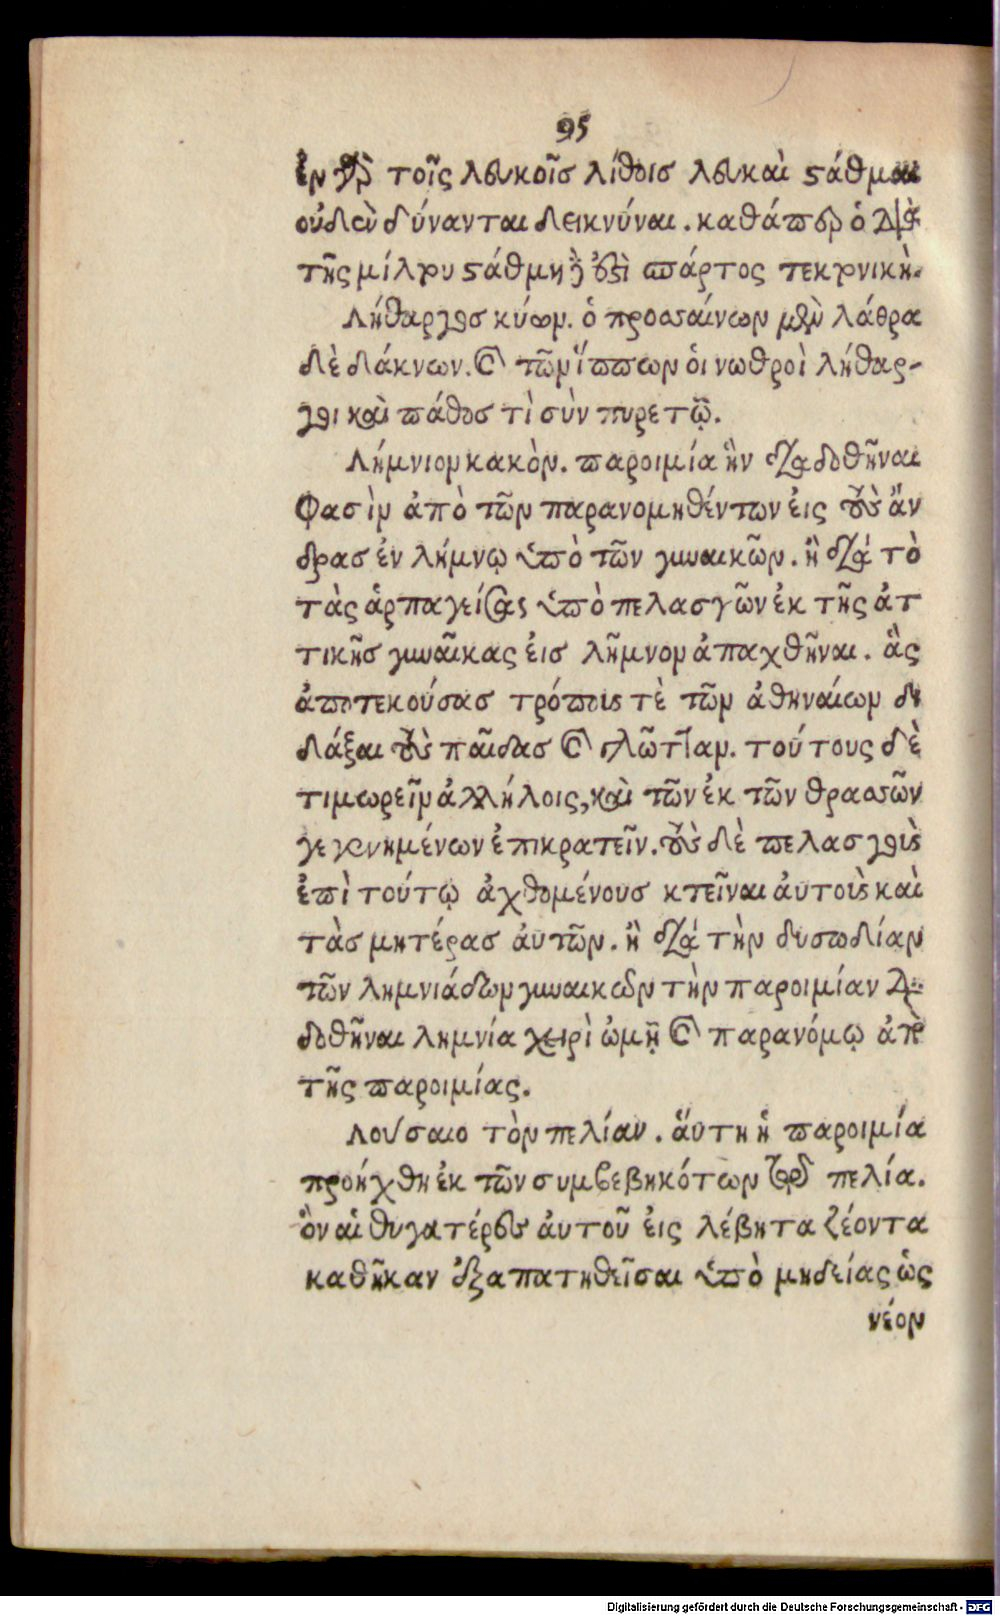 95
ἐν γὰρ τοῖς λευκοῖσ λίθοισ λευκαὶ στάθμαι
οὐδὲν δύνανται δεικνύναι. καθάπερ ὁ διὰ
τῆς μίλτου στάθμη ἐστὶ σπάρτος τεκτονικὴ.
Λήθαργοσ κύων. ὁ προσσαίνων μὲν λάθρα
δὲ δάκνων. καὶ τῶν ἵππων ὁι νωθροὶ λήθαρ-
γοι καὶ πάθοσ τὶ σὺν πυρετῷ.
Λήμνιον κακὸν. παροιμία ἣν διαδοθῆναι
Φασὶν ἀπὸ τῶν παρανομηθέντων ἐις τοὺς ἄν
δρασ ἐν λήμνῳ ὑπὸ τῶν γυναικῶν. ἢ διά τὸ
τὰς ἁρπαγείσας ὑπὸ πελασγῶν ἐκ τῆς ἀτ
τικῆσ γυναῖκας ἐισ λῆμνον ἀπαχθῆναι. ἃς
ἀποτεκούσασ τρόπους τὲ τῶν ἀθηναίων δι
δάξαι τοὺς παῖδασ καὶ γλῶτταν. τούτους δὲ
τιμωρεῖν ἀλλήλοις, καὶ τῶν ἐκ τῶν θρασσῶν
γεγενημένων ἐπικρατεῖν. τοὺς δὲ πελασγοὺς
ἐπὶ τούτῳ ἀχθομένουσ κτεῖναι ἀυτοὺς καὶ
τὰσ μητέρασ ἀυτῶν. ἢ διά τὴν δυσωδίαν
τῶν λημνιάδων γυναικῶν τὴν παροιμίαν δια
δοθῆναι λημνία χειρὶ ὠμῇ καὶ παρανόμῳ ἀπὸ
τῆς παροιμίας.
Λούσαιο τὸν πελίαν. ἅυτη ἡ παροιμία
προήχθη ἐκ τῶν συμβεβηκότων τῷ πελία.
ὃν ἁι θυγατέρες ἀυτοῦ ἐις λέβητα ζέοντα
καθῆκαν ἐξαπατηθεῖσαι ὑπὸ μηδείας ὡς
νέον
Digitalisierung gefördert durch die Deutsche Forschungsgemeinschaft - DFG